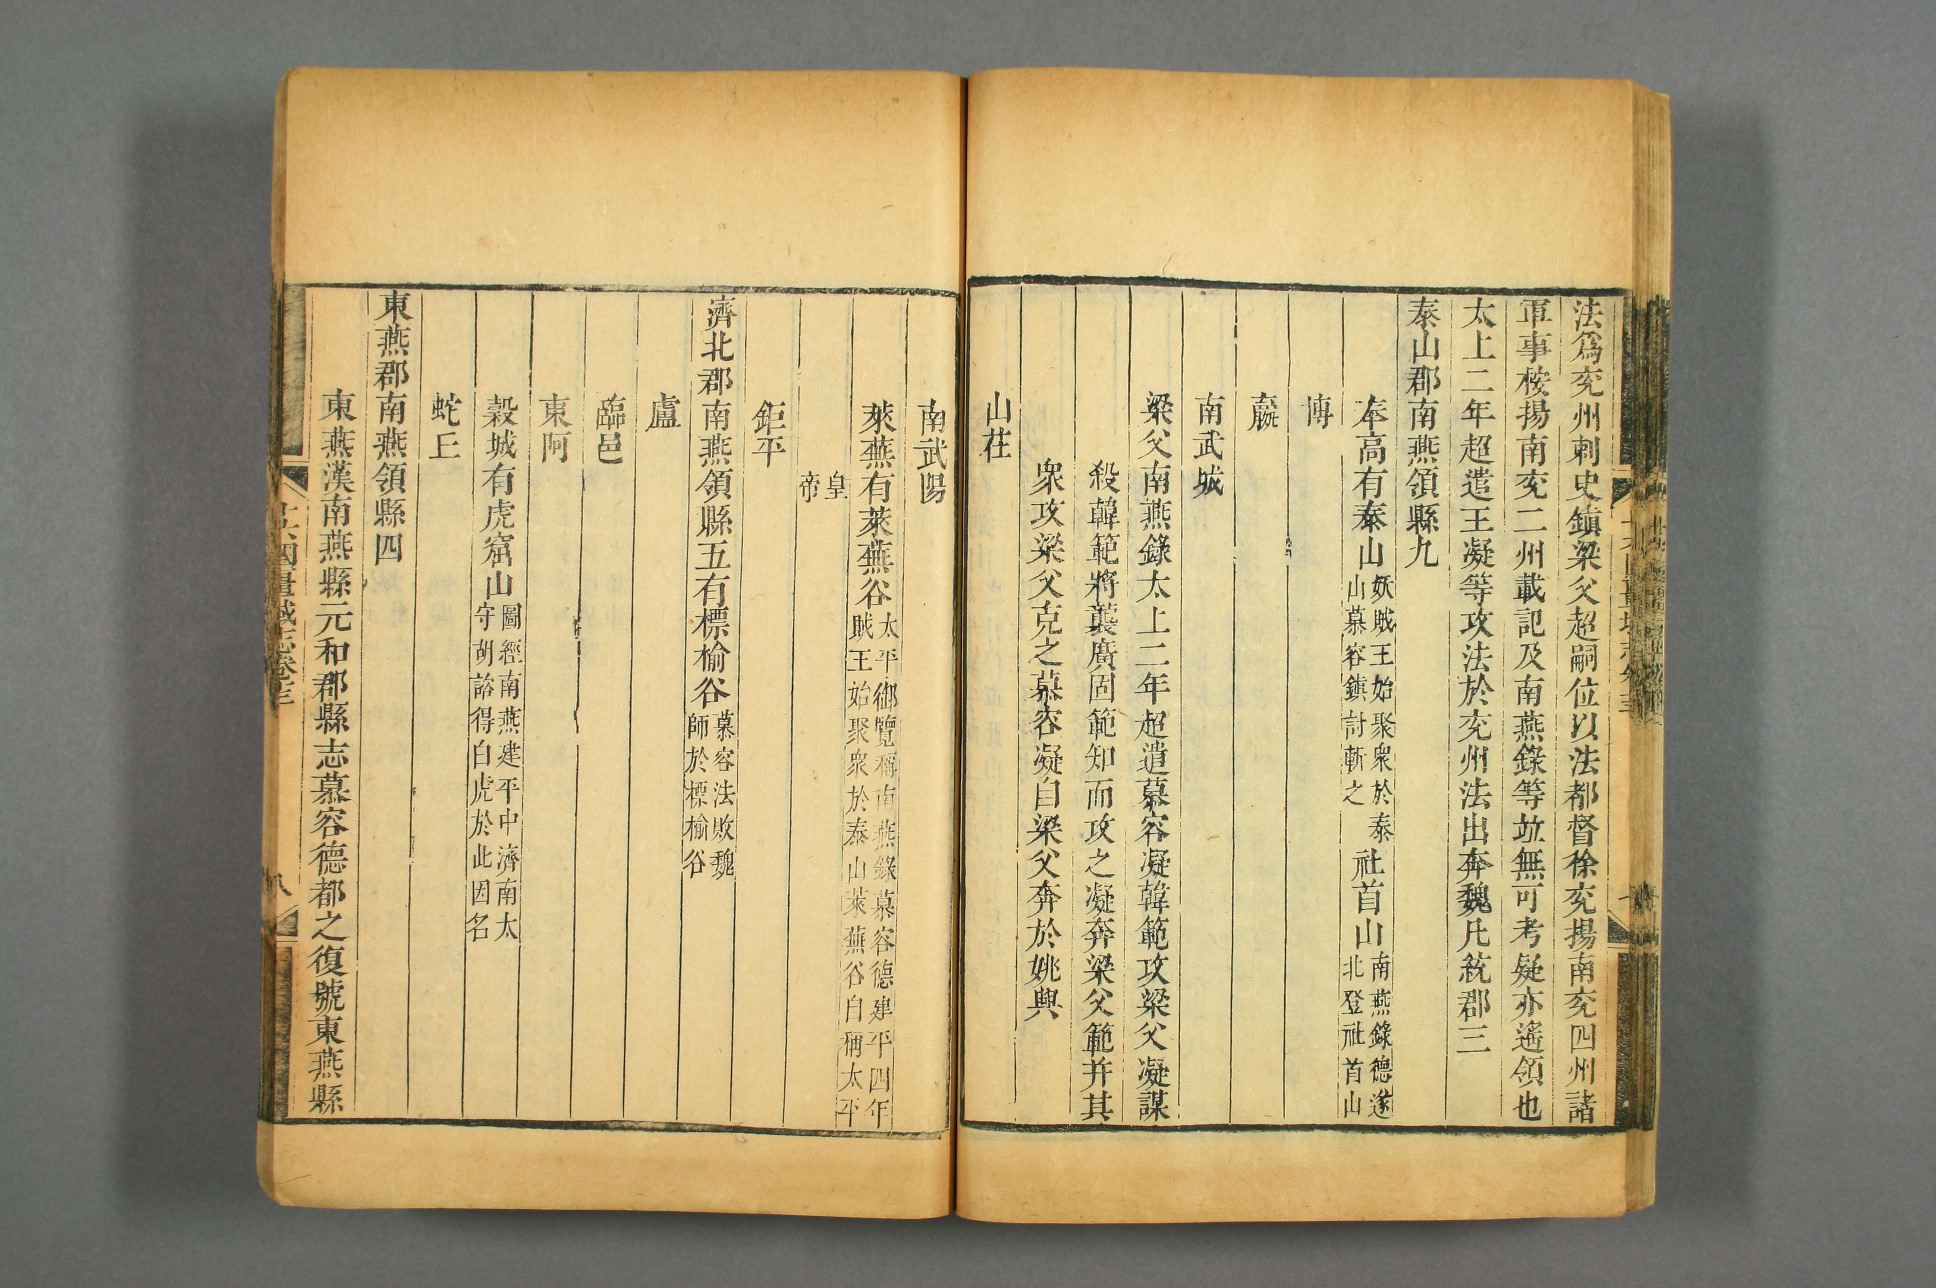 法爲兖州刺史鎮梁父超嗣位以法都督徐兖揚南兖四州諸
軍事桉揚南兖二州載記及南燕錄等竝無可考疑亦遙領也
太上二年超遣王凝等攻法於兖州法出奔魏凡統郡三
泰山郡南燕領縣九
奉高有泰山妖賊王始聚衆於泰山慕容鎮討斬之社首山南燕錄德遂北登社首山
博
嬴
南武城
梁父南燕錄太上二年超遣慕容凝韓範攻梁父凝謀
殺韓範將襲廣固範知而攻之凝奔梁父範并其
衆攻梁父克之慕容凝自梁父奔於姚興
山茌
南武陽
萊蕪有萊蕪谷太平御覽稱南燕錄慕容德建平四年賊王始聚衆於泰山萊蕪谷自稱太平
皇帝
鉅平
濟北郡南燕領縣五有標榆谷慕容法敗魏師於標榆谷
盧
臨邑
東阿
穀城有虎窟山圖經南燕建平中濟南太守胡諮得白虎於此因名
蛇丘
東燕郡南燕領縣四
東燕漢南燕縣元和郡縣志慕容德都之復號東燕縣
十六國疆域志卷十三
八